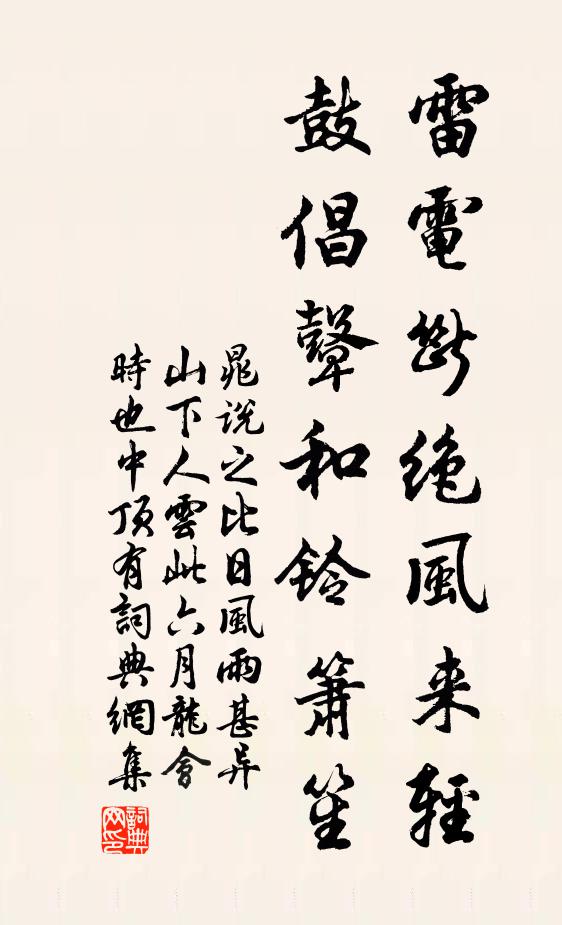 雷電斷絶風来輕
鼓倡鼙和鈴簫笙
晁説之比日風雨甚异
山下人雲此六月龍會
時也中頂有詞典網集
詞典网印